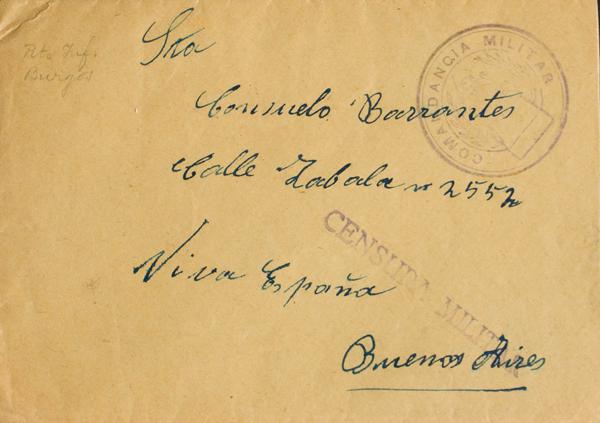 Rto Inf.
Burgos
Sta
Consuelo Barrantes
Calle Zabala nº 2552
Viva España
Buenos Aires
COMANDANCIA MILITAR
CENSURA MILITAR